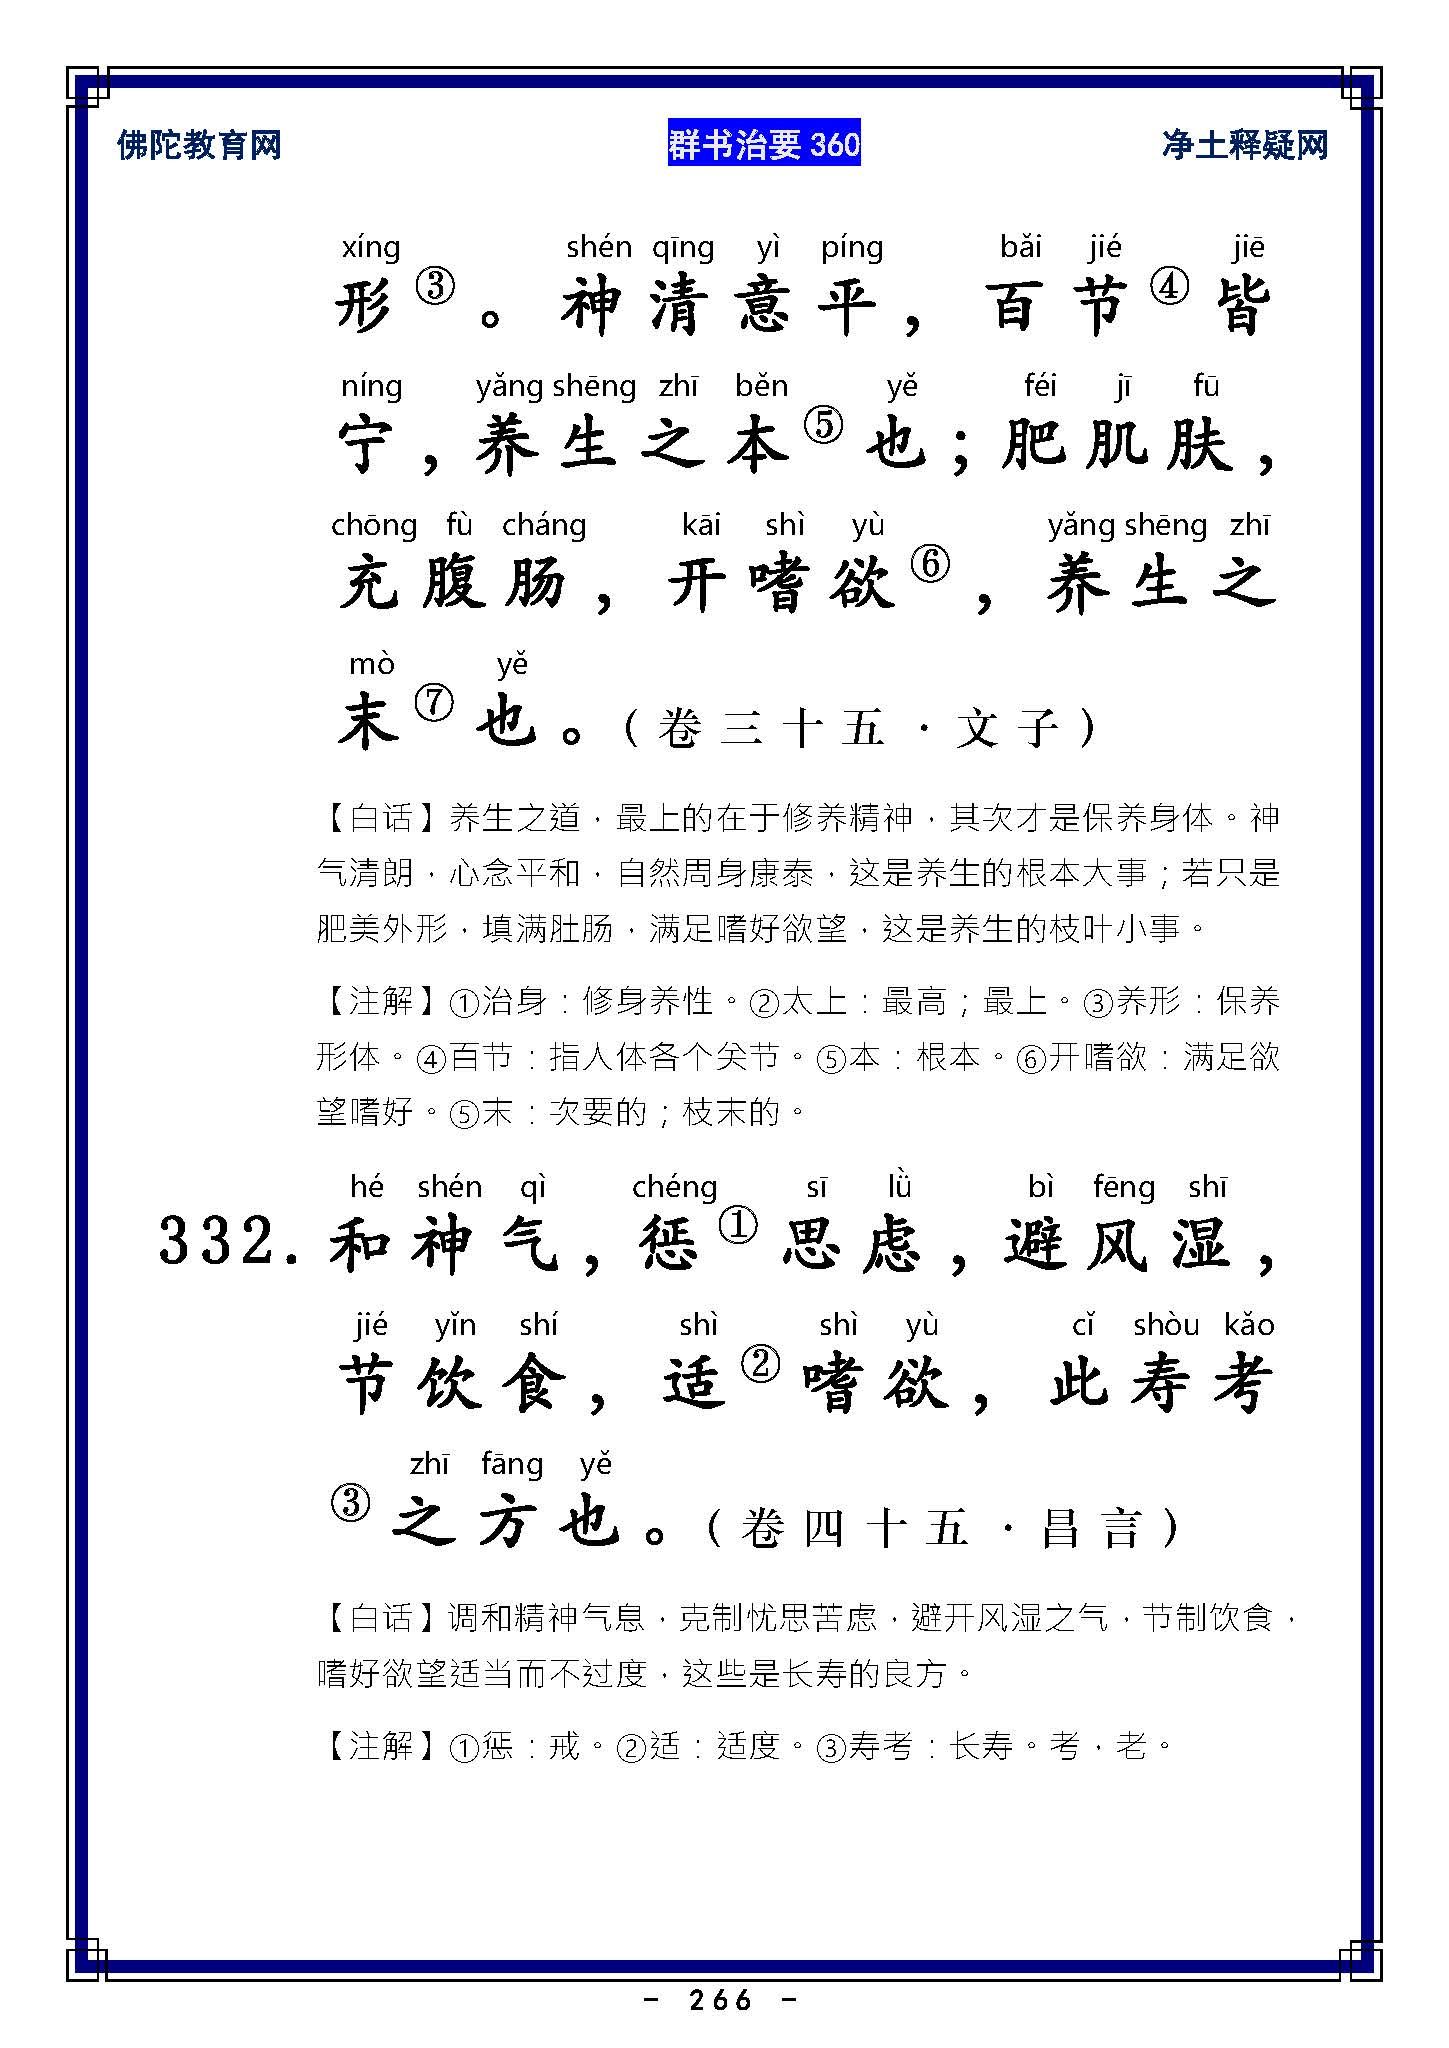 佛陀教育网 群书治要 360 净土释疑网
xíng shén qīng yì píng bǎi jié jiē
形③。神清意平，百节④皆
níng yǎng shēng zhī běn yě féi jī fū
宁，养生之本⑤也；肥肌肤，
chōng fù cháng kāi shì yù yǎng shēng zhī
充腹肠，开嗜欲⑥，养生之
mò yě
末⑦也。（卷三十五·文子）
【白话】养生之道，最上的在于修养精神，其次才是保养身体。神
气清朗，心念平和，自然周身康泰，这是养生的根本大事；若只是
肥美外形，填满肚肠，满足嗜好欲望，这是养生的枝叶小事。
【注解】①治身：修身养性。②太上：最高；最上。③养形：保养
形体。④百节：指人体各个关节。⑤本：根本。⑥开嗜欲：满足欲
望嗜好。⑤末：次要的；枝末的。
hé shén qì chéng sī lǜ bì fēng shī
332. 和神气，惩①思虑，避风湿，
jié yǐn shí shì shì yù cǐ shòu kǎo
节饮食，适②嗜欲，此寿考
zhī fāng yě
③之方也。（卷四十五·昌言）
【白话】调和精神气息，克制忧思苦虑，避开风湿之气，节制饮食，
嗜好欲望适当而不过度，这些是长寿的良方。
【注解】①惩：戒。②适：适度。③寿考：长寿。考，老。
- 266 -